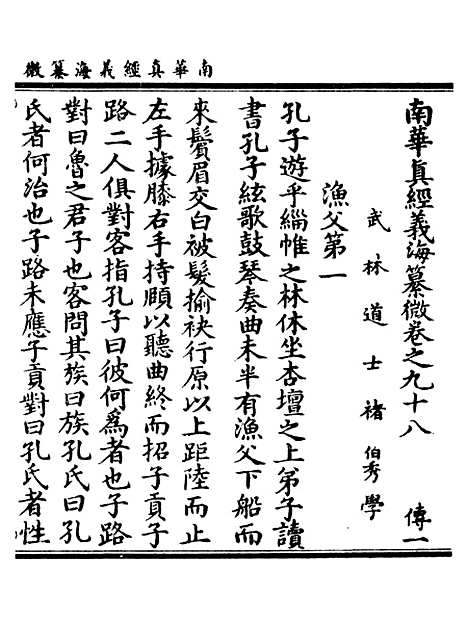 南華真經義海纂微
南華真經義海纂微卷之九十八 傳一
武林道士褚伯秀學
漁父第一
孔子遊乎緇帷之林休坐杏壇之上弟子讀
書孔子絃歌鼓琴奏曲未半有漁父下船而
來鬢眉交白被髮揄袂行原以上距陸而止
左手據膝右手持頤以聽曲終而招子貢子
路二人俱對客指孔子曰彼何爲者也子路
對曰魯之君子也客問其族曰族孔氏曰孔
氏者何治也子路未應子貢對曰孔氏者性